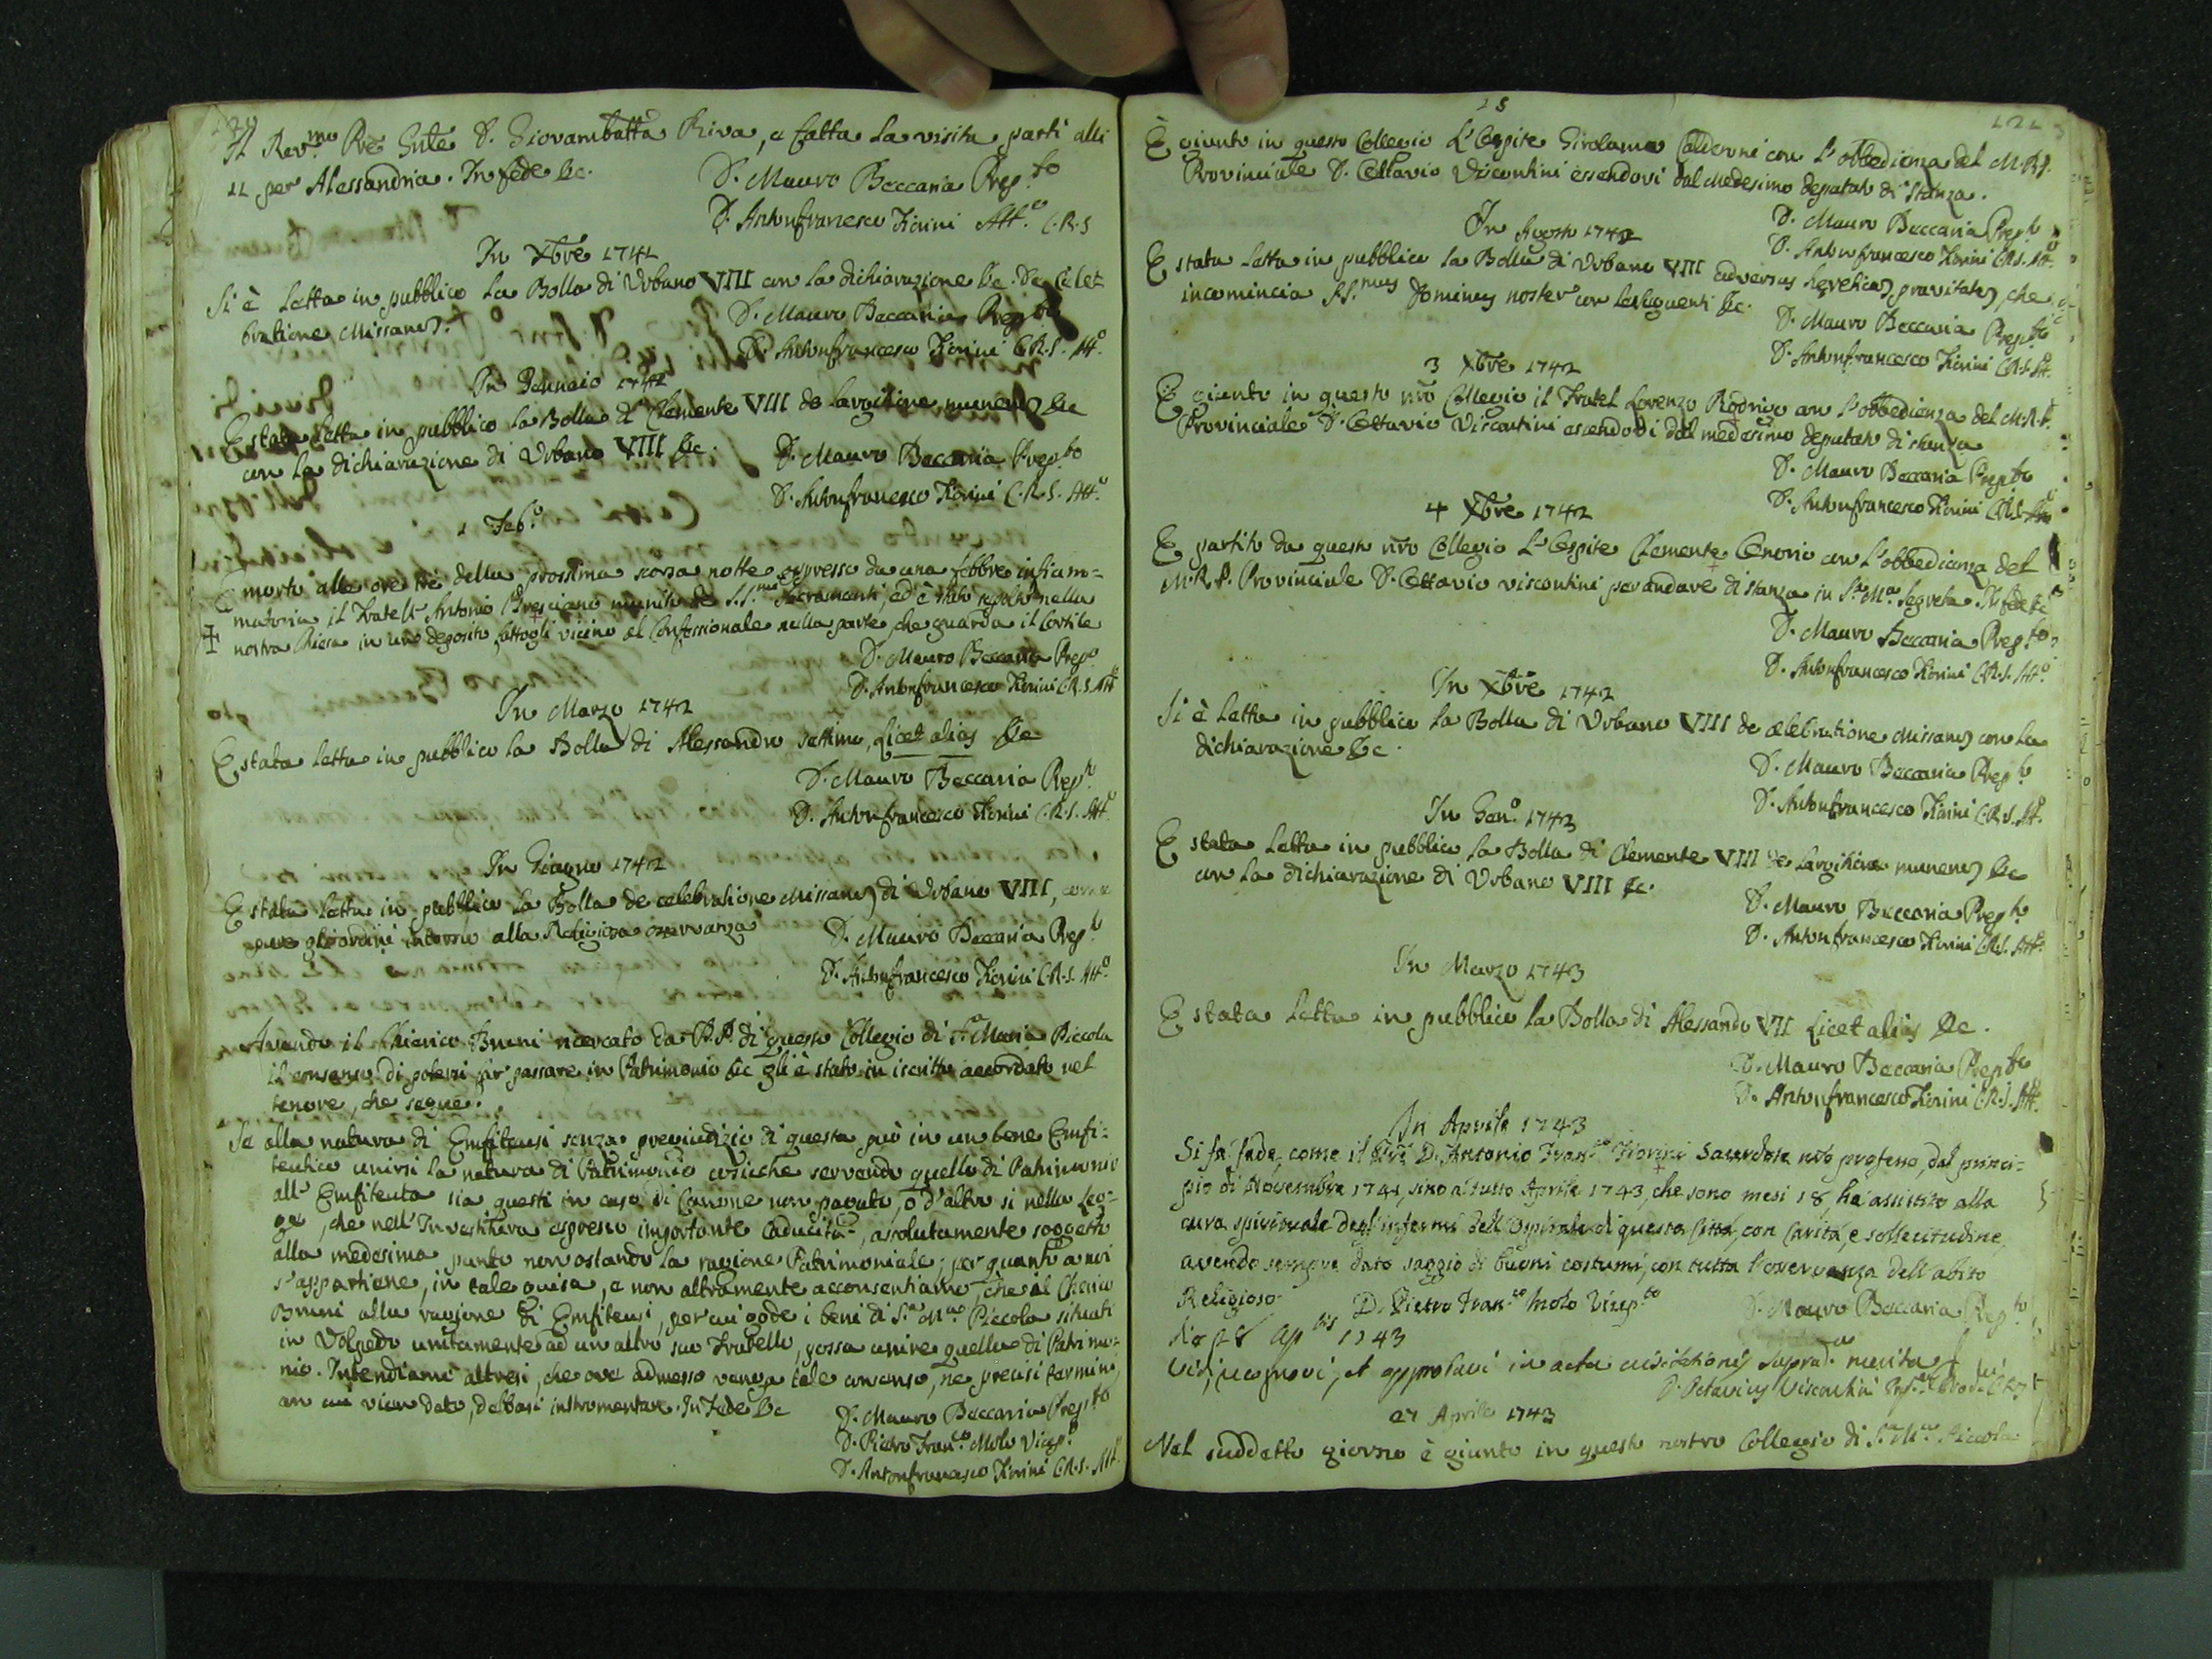 Il Rev.mo Pre Gnle D. Giovambatta Riva, e fatta la visita partì alli
11 per Alessandria. In fede &c.
D. Mauro Beccaria Prep.to
D. Antonfrancesco Fiorini Att.o C.R.S
In Xbre 1741
Si è letta in pubblico la Bolla di Urbano VIII con la dichiarazione &c. De Cele=
bratione Missarum.
D. Mauro Beccaria Prep.to
D. Antonfrancesco Fiorini C.R.S. Att.o
In Gennaio 1742
È stata letta in pubblico la Bolla di Clemente VIII de largitione munerum &c
con la dichiarazione di Urbano VIII &c.
D. Mauro Beccaria Prep.to
D. Antonfrancesco Fiorini C.R.S. Att.o
1 Feb.o
È morto alle ore tre della prossima scorsa notte oppresso da una febbre infiam=
matoria il Fratell Antonio Bresciano munito de S.S.mi Sacramenti, ed è stato sepolto nella
nostra Chiesa in uno deposito fattogli vicino al Confessionale nella parte, che guarda il Cortile
D. Mauro Beccaria Prep.o
D. Antonfrancesco Fiorini C.R.S. Att.o
In Marzo 1742
È stata letta in pubblico la Bolla di Alessandro settimo, Licet alias &c
D. Mauro Beccaria Prep.to
D. Antonfrancesco Fiorini C.R.S. Att.o
In Giugno 1742
È stata letta in pubblico la Bolla de celebratione Missarum di Urbano VIII, come
pure gli ordini intorno alla Religiosa osservanza
D. Mauro Beccaria Prep.to
D. Antonfrancesco Fiorini C.R.S. Att.o
Avendo il Chierico Bruni ricercato da P.P. di questo Collegio di S.a Maria Piccola
il consenso di potersi far passare in Patrimonio &c gli è stato in iscritto accordato nel
tenore, che segue.
Se alla natura di Emfiteusi senza pregiudizio di questa può in un bene Emfi=
teutico unirsi la natura di Patrimonio cosicche servendo quello di Patrimonio
all' Emfiteuta sia questi in caso di Canone non pagato, o d'altro si nella Leg=
ge, che nell' Investitura espresso importante Caducità, assolutamente soggetto
alla medesima punto non ostando la ragione Patrimoniale; per quanto a noi
s'appartiene, in tale guisa, e non altramente acconsentiamo, che il Chierico
Bruni alla ragione di Emfiteusi, per cui gode i beni di S.a M.a Piccola situati
in Volpedo unitamente ad un altro suo Fratello, possa unire quella di Patrimo=
nio. Intendiamo altresì, che ove admesso venga tale consenso, ne precisi termini,
con cui vien dato, debbasi instromentare. In Fede &c
D. Mauro Beccaria Prep.to
D. Pietro Fran.co Molo Vicep.to
D. Antonfrancesco Fiorini C.R.S. Att.o
È giunto in questo Collegio l'Ospite Girolamo Calderoni con l'obbedienza del M.R.P.
Provinciale D. Ottavio Viscontini essendovi dal medesimo deputato di stanza.
D. Mauro Beccaria Prep.to
D. Antonfrancesco Fiorini C.R.S. Att.
In Agosto 1742
È stata letta in pubblico la Bolla di Urbano VIII adversus hereticam pravitatem, che
incomincia SS.mus Dominus noster con le seguenti &c.
D. Mauro Beccaria Prep.to
D. Antonfrancesco Fiorini C.R.S. Att.
3 Xbre 1742
È giunto in questo nro Collegio il Fratel Lorenzo Rodrigo con l'obbedienza del M.R.P.
Provinciale D. Ottavio Viscontini essendovi dal medesimo deputato di stanza
D. Mauro Beccaria Prep.to
D. Antonfrancesco Fiorini C.R.S. Att.o
4 Xbre 1742
È partito da questo nro Collegio l'Ospite Clemente Cenorio con l'obbedienza del
M.R.P. Provinciale D. Ottavio Viscontini per andare di stanza in S.a M.a Segreta. In fede &c
D. Mauro Beccaria Prep.to
D. Antonfrancesco Fiorini C.R.S. Att.o
In Xbre 1742
Si è letta in pubblico la Bolla di Urbano VIII de celebratione Missarum con la
dichiarazione &c.
D. Mauro Beccaria Prep.to
D. Antonfrancesco Fiorini C.R.S. Att.
In Gen.o 1743
È stata letta in pubblico la Bolla di Clemente VIII de largitione munerum &c
con la dichiarazione di Urbano VIII &c.
D. Mauro Beccaria Prep.to
D. Antonfrancesco Fiorini C.R.S. Att.o
In Marzo 1743
È stata letta in pubblico la Bolla di Alessandro VII Licet alias &c.
D. Mauro Beccaria Prep.to
D. Antonfrancesco Fiorini C.R.S. Att.
In Aprile 1743
Si fa fede, come il Pre D. Antonio Fran.co Fiorini Sacerdote nro professo, dal princi=
pio di Novembre 1741, sino a tutto Aprile 1743, che sono mesi 18, ha assistito alla
cura spirituale degl'infermi dell'Ospitale di questa Città, con Carità, e sollecitudine,
avendo sempre dato saggio di buoni costumi, con tutta l'osservanza dell'abito
Religioso.
D. Pietro Fran.co Molo Vicep.to
D. Mauro Beccaria Prep.to
die 28 Ap.lis 1743
Vidi, recognovi, et approbavi in actu visitationis
D. Octavius Viscontini
27 Aprile 1743
Nel suddetto giorno è giunto in questo nostro Collegio di S.a M.a Piccola